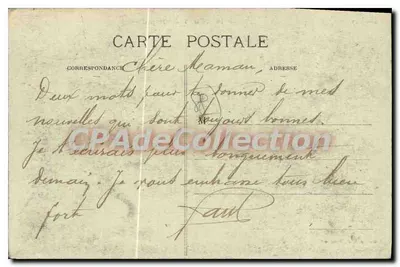 CARTE POSTALE
CORRESPONDANCE
ADRESSE
Chère Maman,
Deux mots pour te donner de mes
nouvelles qui sont toujours bonnes.
Je t'écrirais plus longuement
demain. Je vous embrasse tous bien
fort
Paul
CPADeCollection.com